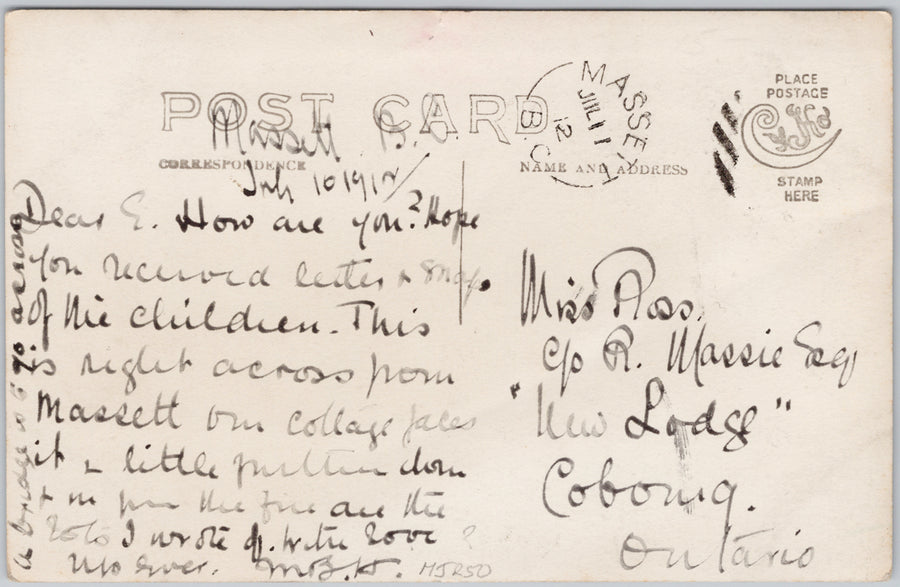 POST CARD
CORRESPONDENCE
NAME AND ADDRESS
PLACE
POSTAGE
STAMP
HERE
MASSETT
JUL 11
12
B.C
Massett B.C.
July 10 1912
Dear E. How are you? Hope
you received letter & snaps
of the children. This
is right across from
Massett our cottage faces
it & little further down
& in the are the
lots I wrote of. With Love
M.B.H. MJR50
a bridge to go across
Miss Ross.
c/o R. Massie Esq
"New Lodge"
Cobourg.
Ontario